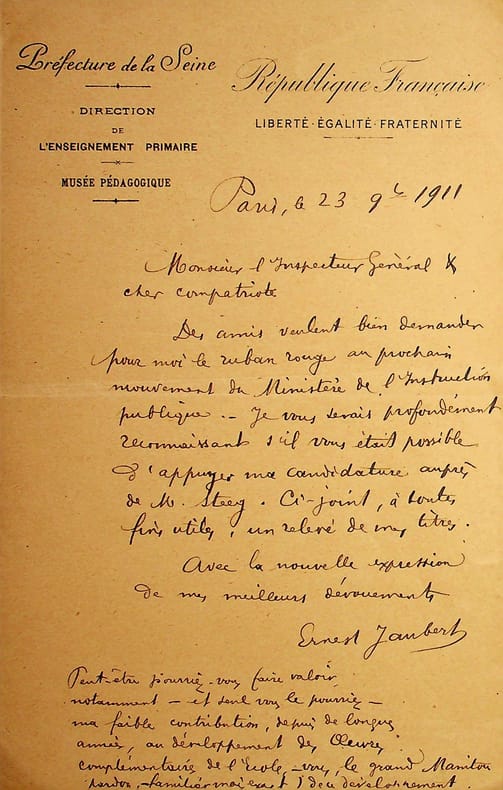 Préfecture de la Seine
DIRECTION
DE
L'ENSEIGNEMENT PRIMAIRE
MUSÉE PÉDAGOGIQUE
République Française
LIBERTÉ-ÉGALITÉ-FRATERNITÉ
Paris, le 23 9bre 1911
Monsieur l'Inspecteur Général &
cher compatriote
Des amis veulent bien demander
pour moi le ruban rouge au prochain
mouvement du Ministère de l'Instruction
publique. — Je vous serais profondément
reconnaissant s'il vous était possible
d'appuyer ma candidature auprès
de M. Steeg. Ci-joint, à toutes
fins utiles, un relevé de mes titres.
Avec la nouvelle expression
de mes meilleurs dévouements
Ernest Jaubert
Peut-être pourriez-vous faire valoir
notamment — et seul vous le pourriez —
ma faible contribution, depuis de longues
années, au développement des Œuvres
complémentaires de l'École — vous, le grand Manitou
pardon,